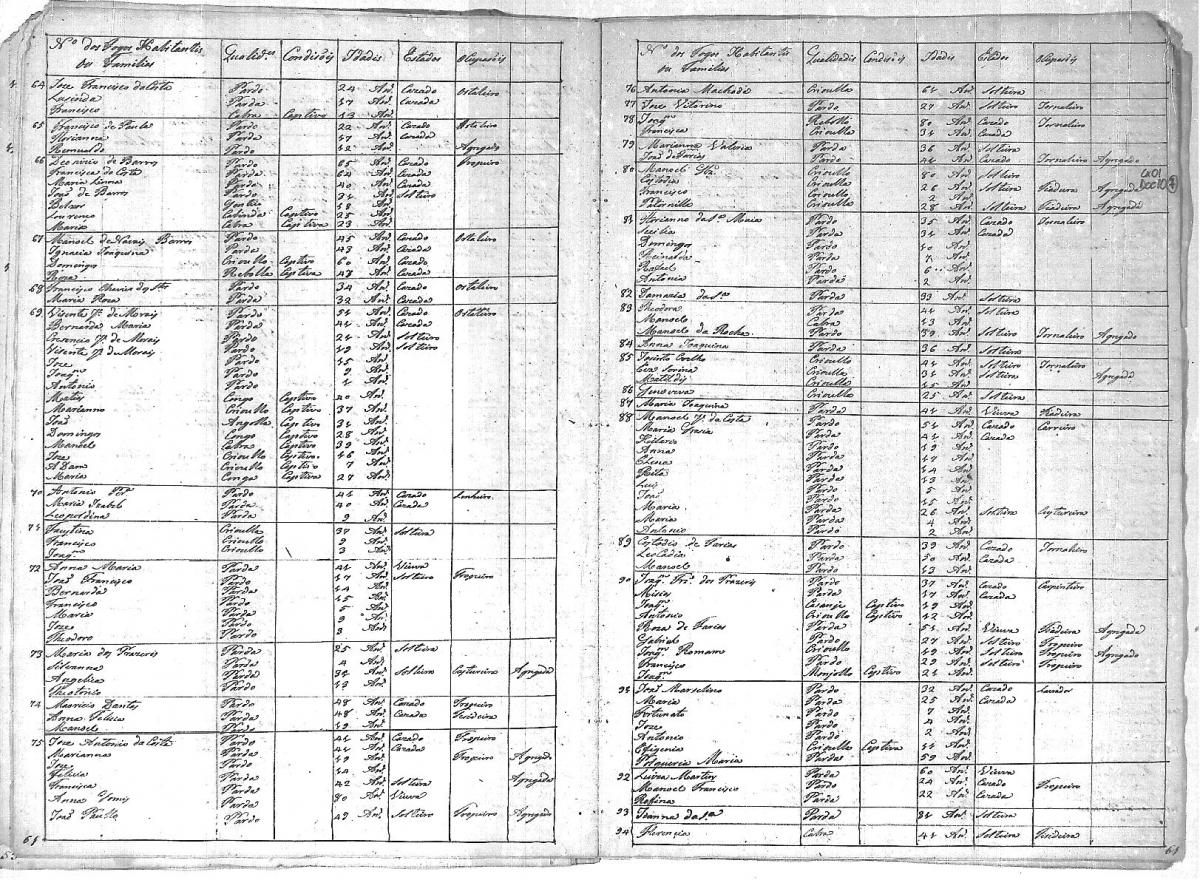 Nº dos Fogos Habitantes Qualid.es Condisois Idades Estados Ocupasois
ou Familias
64 Joze Francisco da Costa Pardo 24 An.s Cazado Ostaleiro
Luzinda Parda 17 An.s Cazada
Francisco Cabra Captivo 13 An.s
65 Francisco de Paula Pardo 22 An.s Cazado Ostaleiro
Marianna Parda 17 An.s Cazada
Remualdo Pardo 12 An.s Agregado
66 Pardo 65 An.s Cazado Tropeiro
Francisca da Costa Parda 64 An.s Cazada
Maria Parda 40 An.s Cazada
Joaõ de Barros Pardo 31 An.s Solteiro
18 An.s
Lourenco Cabinda Captivo 25 An.s
Maria Cabra Captiva 23 An.s
67 Manoel de Barros Pardo 45 An.s Cazado Ostaleiro
Ignacia Joaquina Parda 43 An.s Cazada
Domingos Crioullo Captivo 60 An.s Cazado
Roza Rebolla Captiva 47 An.s Cazada
68 Francisco Pardo 34 An.s Cazado Ostaleiro
Maria Roza Parda 32 An.s Cazada
69 Vicente Jº de Morais Pardo 51 An.s Cazado
Bernarda Maria Parda 41 An.s Cazada
Jº de Morais Pardo 21 An.s Solteiro
Vicente Jº de Morais Pardo 19 An.s Solteiro
Joze Pardo 15 An.s
Joaq.m Pardo 9 An.s
Antonio Pardo An.s
Mateus Congo Captivo 20 An.s
Marianno Crioullo Captivo 37 An.s
Joaõ Angolla Captivo 31 An.s
Domingos Congo Captivo 28 An.s
Manoel Cabra Captivo 39 An.s
Joze Crioullo Captivo 16 An.s
Adam Crioullo Captivo 7 An.s
Maria Conga Captiva 27 An.s
70 Antonio Pardo 41 An.s Cazado Lenheiro
Maria Izabel Parda 40 An.s Cazada
Leopoldina Parda 9 An.s
71 Faustina Crioulla 37 An.s Solteira
Francisco Crioullo 9 An.s
Joaq.m Crioullo 3 An.s
72 Anna Maria Parda 41 An.s Viuva
Joaõ Francisco Pardo 17 An.s Solteiro Tropeiro
Bernarda Parda 14 An.s
Francisco Pardo 15 An.s
Maria Parda 5 An.s
Joze Pardo 9 An.s
Theodoro Pardo 3 An.s
73 Maria dos Prazeres Parda 25 An.s Solteira
Silvanna Parda 4 An.s
Angelica Parda 31 An.s Solteira Costureira Agregada
Theotonio Pardo 13 An.s
74 Mauricio Dantes Pardo 48 An.s Cazado Tropeiro
Anna Felicia Parda 48 An.s Cazada Fiadeira
Manoel Pardo 19 An.s
75 Joze Antonio da Costa Pardo 41 An.s Cazado Tropeiro
Marianna Parda 41 An.s Cazada
Joze Pardo 19 An.s Tropeiro Agregado
Felicia Parda 14 An.s
Francisca Parda 42 An.s Solteira Agregada
Anna Gomes Parda 80 An.s Viuva
Joaõ Paulo Pardo 49 An.s Solteiro Tropeiro Agregado
61
Nº dos Fogos Habitantes Qualidades Condisois Idades Estados Ocupasois
ou Familias
76 Antonia Machada Crioulla 61 An.s Solteira
77 Joze Vitorino Pardo 27 An.s Solteiro Jornaleiro
78 Joaq.m Rebollo 80 An.s Cazado Jornaleiro
Francisca Crioulla 31 An.s Cazada
79 Marianna Valeria Parda 36 An.s Solteira
Joaõ de Farias Pardo 41 An.s Cazado Jornaleiro Agregado
80 Manoel Crioullo An.s Solteiro
Custodia Crioulla 26 An.s Solteira Fiadeira Agregada
Francisco Crioullo 2 An.s
Crioulla 28 An.s Solteira Fiadeira Agregada
Cx01
Doc10
81 Floriano da S.ª Maia Pardo 35 An.s Cazado Jornaleiro
Sicilia Parda 31 An.s Cazada
Domingos Pardo 10 An.s
Parda 7 An.s
Rafael Pardo 6 An.s
Antonia Parda 2 An.s
82 Damazia da S.ª Parda 33 An.s Solteira
83 Theodora Parda 41 An.s Solteira
Manoel Cabra 13 An.s
Manoel da Rocha Pardo 59 An.s Solteiro Jornaleiro Agregado
84 Anna Joaquina Parda 36 An.s Solteira
85 Jacinto Coelho Crioullo 41 An.s Solteiro Jornaleiro
Crioulla 31 An.s Solteira Agregada
Matildes Crioulla 15 An.s
86 Genoveva Crioulla 25 An.s Solteira
87 Maria Joaquina Parda 41 An.s Viuva Fiadeira
88 Manoel Jº da Costa Pardo 51 An.s Cazado Carreiro
Maria Gracia Parda 41 An.s Cazada
Hilario Pardo 19 An.s
Anna Parda 17 An.s
Elena Parda 14 An.s
Rita Parda 13 An.s
Luis Pardo 5 An.s
Joaõ Pardo 15 An.s
Maria Parda 26 An.s Solteira Costureira
Maria Parda 4 An.s
Antonio Pardo 2 An.s
89 Custodio de Farias Pardo 39 An.s Cazado Jornaleiro
Leocadia Parda 50 An.s Cazada
Manoel Pardo 13 An.s
90 Joaq.m dos Prazeres Pardo 37 An.s Cazado Carpinteiro
Parda 17 An.s Cazada
Joaq.m Casanje Captivo 19 An.s
Antonio Crioullo Captivo 12 An.s
Roza de Farias Parda 51 An.s Viuva Fiadeira Agregada
Gabriel Pardo 27 An.s Solteiro Tropeiro
Joaq.m Romam Crioullo 19 An.s Solteiro Tropeiro Agregado
Francisco Pardo 29 An.s Solteiro Tropeiro
Joaq.m Monjollo Captivo 21 An.s
91 Joaõ Marselino Pardo 32 An.s Cazado Lavrador
Maria Parda 25 An.s Cazada
Fortunato Pardo 7 An.s
Joze Pardo 4 An.s
Antonio Pardo 2 An.s
Efigenia Crioulla Captiva 11 An.s
Maria Parda 59 An.s
92 Luiza Martins Parda 60 An.s Viuva
Manoel Francisco Pardo 24 An.s Cazado Tropeiro
Rofina Parda 22 An.s Cazada
93 Joanna da S.ª Parda 81 An.s Solteira
94 Florencia Cabra 41 An.s Solteira Fiadeira
61